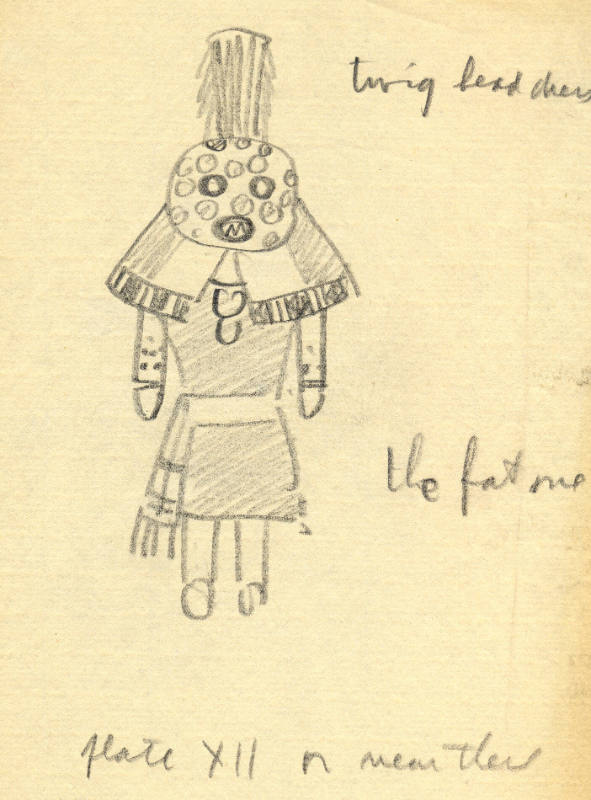 twig head dress
the fat one
plate XII or near there